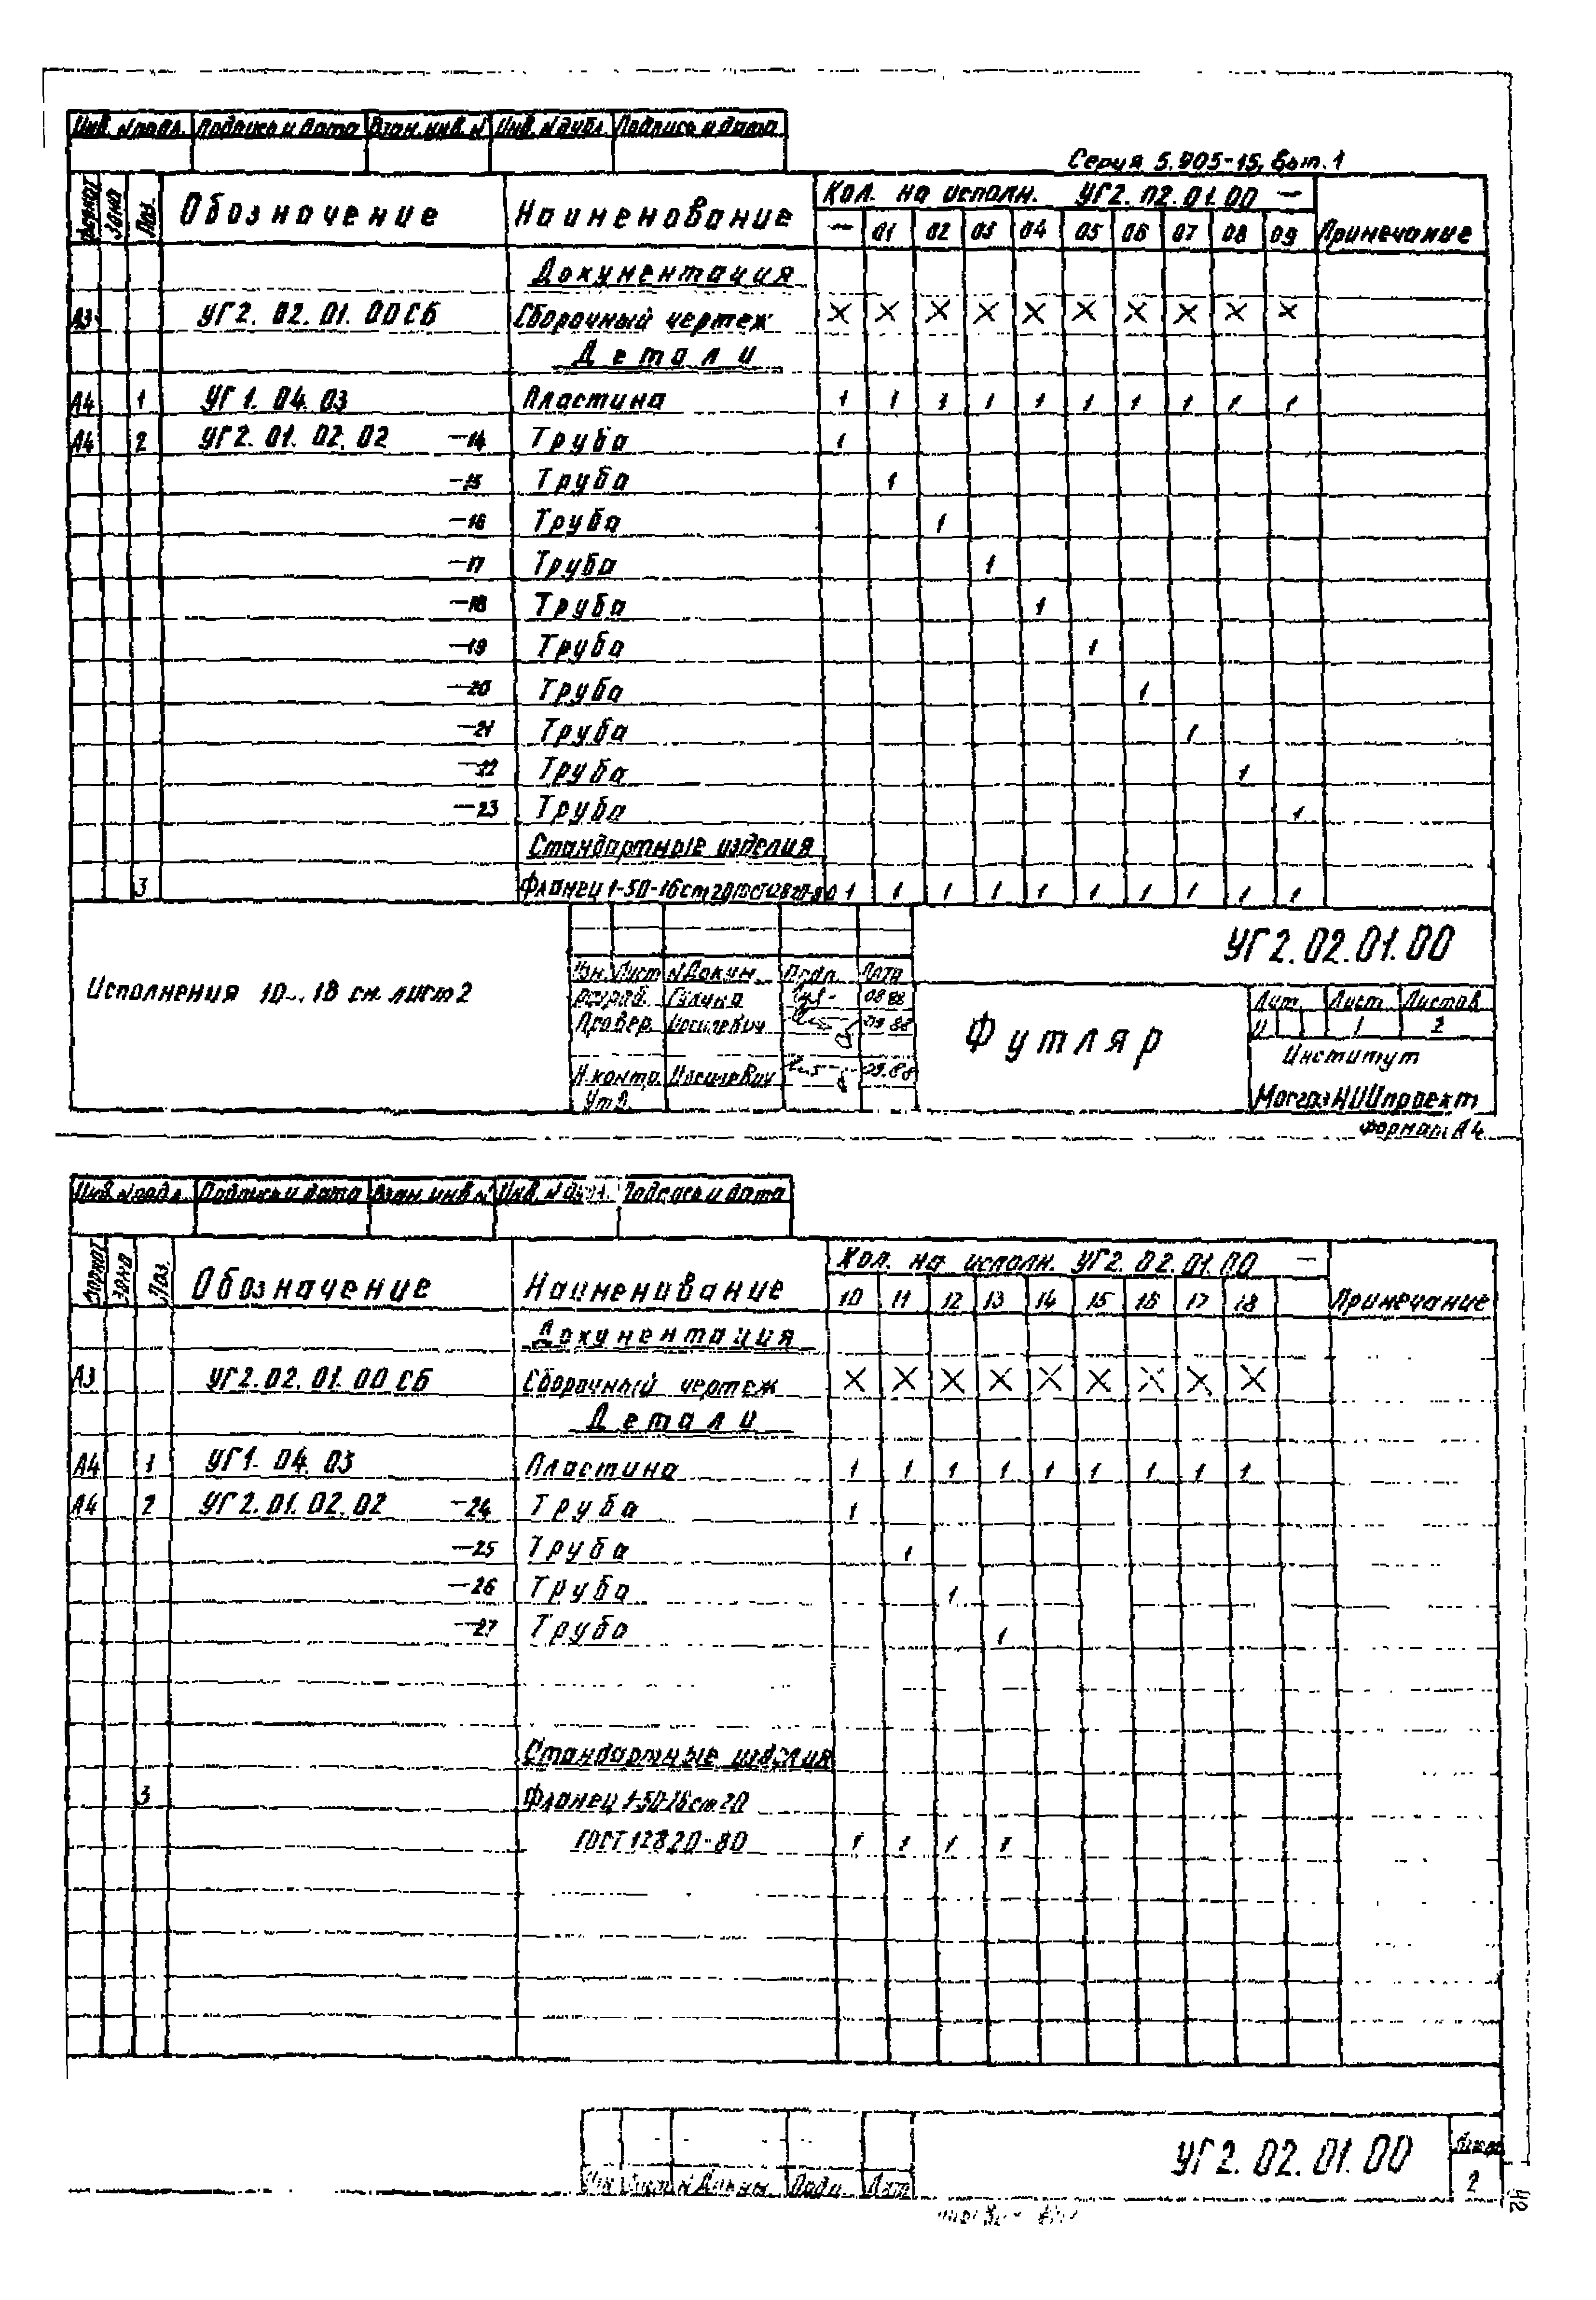 Инв. № подл. Подпись и дата Взам. инв. № Инв. № дубл. Подпись и дата
Серия 5.905-15, вып. 1
Формат Зона Поз. Обозначение Наименование Кол. на исполн. УГ2.02.01.00 — Примечание
— 01 02 03 04 05 06 07 08 09
Документация
А3 УГ2.02.01.00СБ Сборочный чертеж X X X X X X X X X X
Детали
А4 1 УГ1.04.03 Пластина 1 1 1 1 1 1 1 1 1 1
А4 2 УГ2.01.02.02 —14 Труба 1
—15 Труба 1
—16 Труба 1
—17 Труба 1
—18 Труба 1
—19 Труба 1
—20 Труба 1
—21 Труба 1
—22 Труба 1
—23 Труба 1
Стандартные изделия
3 Фланец 1-50-16 ст20 ГОСТ12820-80 1 1 1 1 1 1 1 1 1 1
Исполнения 10...18 см. лист 2
Изм. Лист № Докум. Подп. Дата
Разраб. Галина 08 88
Провер. Иосилевич 09 88
Н.контр. Иосилевич 09.88
Утв.
УГ2.02.01.00
Футляр
Лит. Лист Листов
И 1 2
Институт
МосгазНИИпроект
Формат А4
Инв. № подл. Подпись и дата Взам. инв. № Инв. № дубл. Подпись и дата
Формат Зона Поз. Обозначение Наименование Кол. на исполн. УГ2.02.01.00 — Примечание
10 11 12 13 14 15 16 17 18
Документация
А3 УГ2.02.01.00 СБ Сборочный чертеж X X X X X X X X X
Детали
А4 1 УГ1.04.03 Пластина 1 1 1 1 1 1 1 1 1
А4 2 УГ2.01.02.02 —24 Труба 1
—25 Труба 1
—26 Труба 1
—27 Труба 1
Стандартные изделия
3 Фланец 1-50-16 ст20
ГОСТ 12820-80 1 1 1 1
Изм Лист № Докум. Подп. Дат
УГ2.02.01.00
Лист
2
42